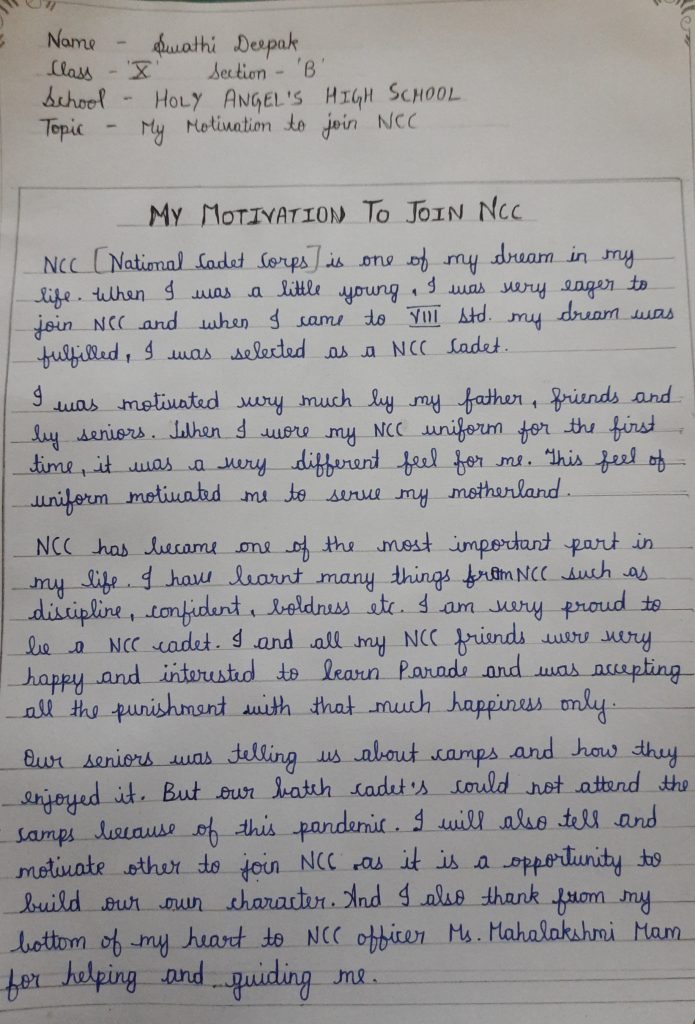 Name - Swathi Deepak
Class - 'X' Section - 'B'
School - HOLY ANGEL'S HIGH SCHOOL
Topic - My Motivation to join NCC
MY MOTIVATION TO JOIN NCC
NCC [National Cadet Corps] is one of my dream in my
life. When I was a little young, I was very eager to
join NCC and when I came to VIII std. my dream was
fulfilled, I was selected as a NCC Cadet.
I was motivated very much by my father, friends and
by seniors. When I wore my NCC uniform for the first
time, it was a very different feel for me. This feel of
uniform motivated me to serve my motherland.
NCC has became one of the most important part in
my life. I have learnt many things from NCC such as
discipline, confident, boldness etc. I am very proud to
be a NCC cadet. I and all my NCC friends were very
happy and interested to learn Parade and was accepting
all the punishment with that much happiness only.
Our seniors was telling us about camps and how they
enjoyed it. But our batch cadet's could not attend the
camps because of this pandemic. I will also tell and
motivate other to join NCC as it is a opportunity to
build our own character. And I also thank from my
bottom of my heart to NCC officer Ms. Mahalakshmi Mam
for helping and guiding me.